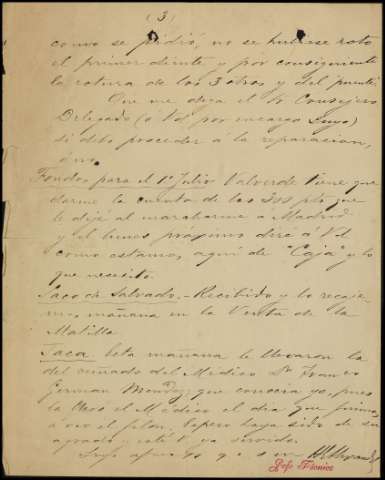 (3)
como se pidió, no se hubiese roto
el primer diente y por consiguiente
la rotura de los 3 otros y del puente.
Que me diga el Sr Consejero
Delegado (ó Vd por encargo suyo)
si debo proceder á la reparacion,
ó no.
Fondos para el 1º Julio Valverde tiene que
darme la cuenta de las 300 pts que
le dejé al marcharme a Madrid
y el lunes próximo diré á Vd
como estamos, aquí de "Caja" y lo
que necesito.
Saco de Salvado.- Recibido y lo recoje-
mañana en la Venta de la
Matilla
Jaca. Esta mañana le llevaron la
del cuñado del Médico Dn
German que conocia yo, pues
la llevó el Médico el dia que fuimos
á ver el filon. Espero haya sido de su
agrado y esté Vd servido.
Suyo afmo
Jefe Técnico